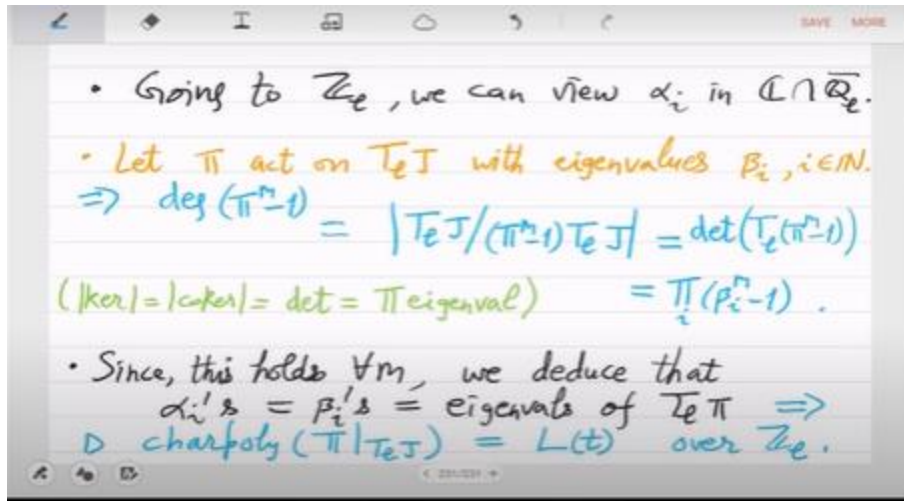 SAVE MORE
• Going to ℤ_ℓ, we can view α_i in ℂ∩ℚ̄_ℓ.
• Let π act on T_ℓJ with eigenvalues β_i, i∈ℕ.
⇒ deg(πⁿ-1) = |T_ℓJ/(πⁿ-1)T_ℓJ| = det(T_ℓ(πⁿ-1))
(|ker|=|coker|= det = π eigenval) = ∏_i(β_iⁿ-1).
• Since, this holds ∀n, we deduce that
α_i's = β_i's = eigenvals of T_ℓπ ⇒
D charpoly(π|_{T_ℓJ}) = L(t) over ℤ_ℓ.